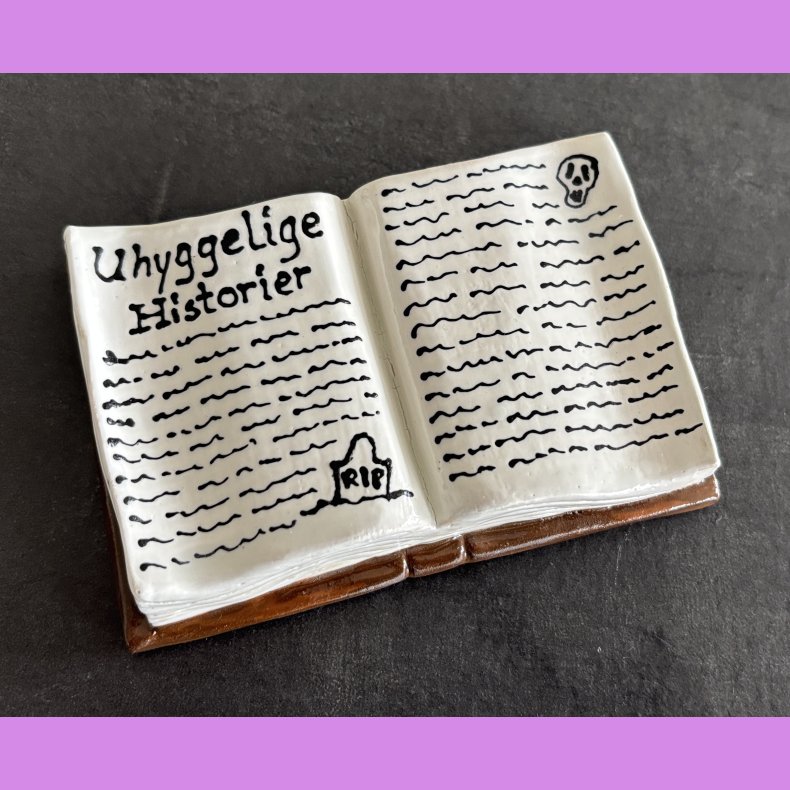 Uhyggelige
Historier
RIP